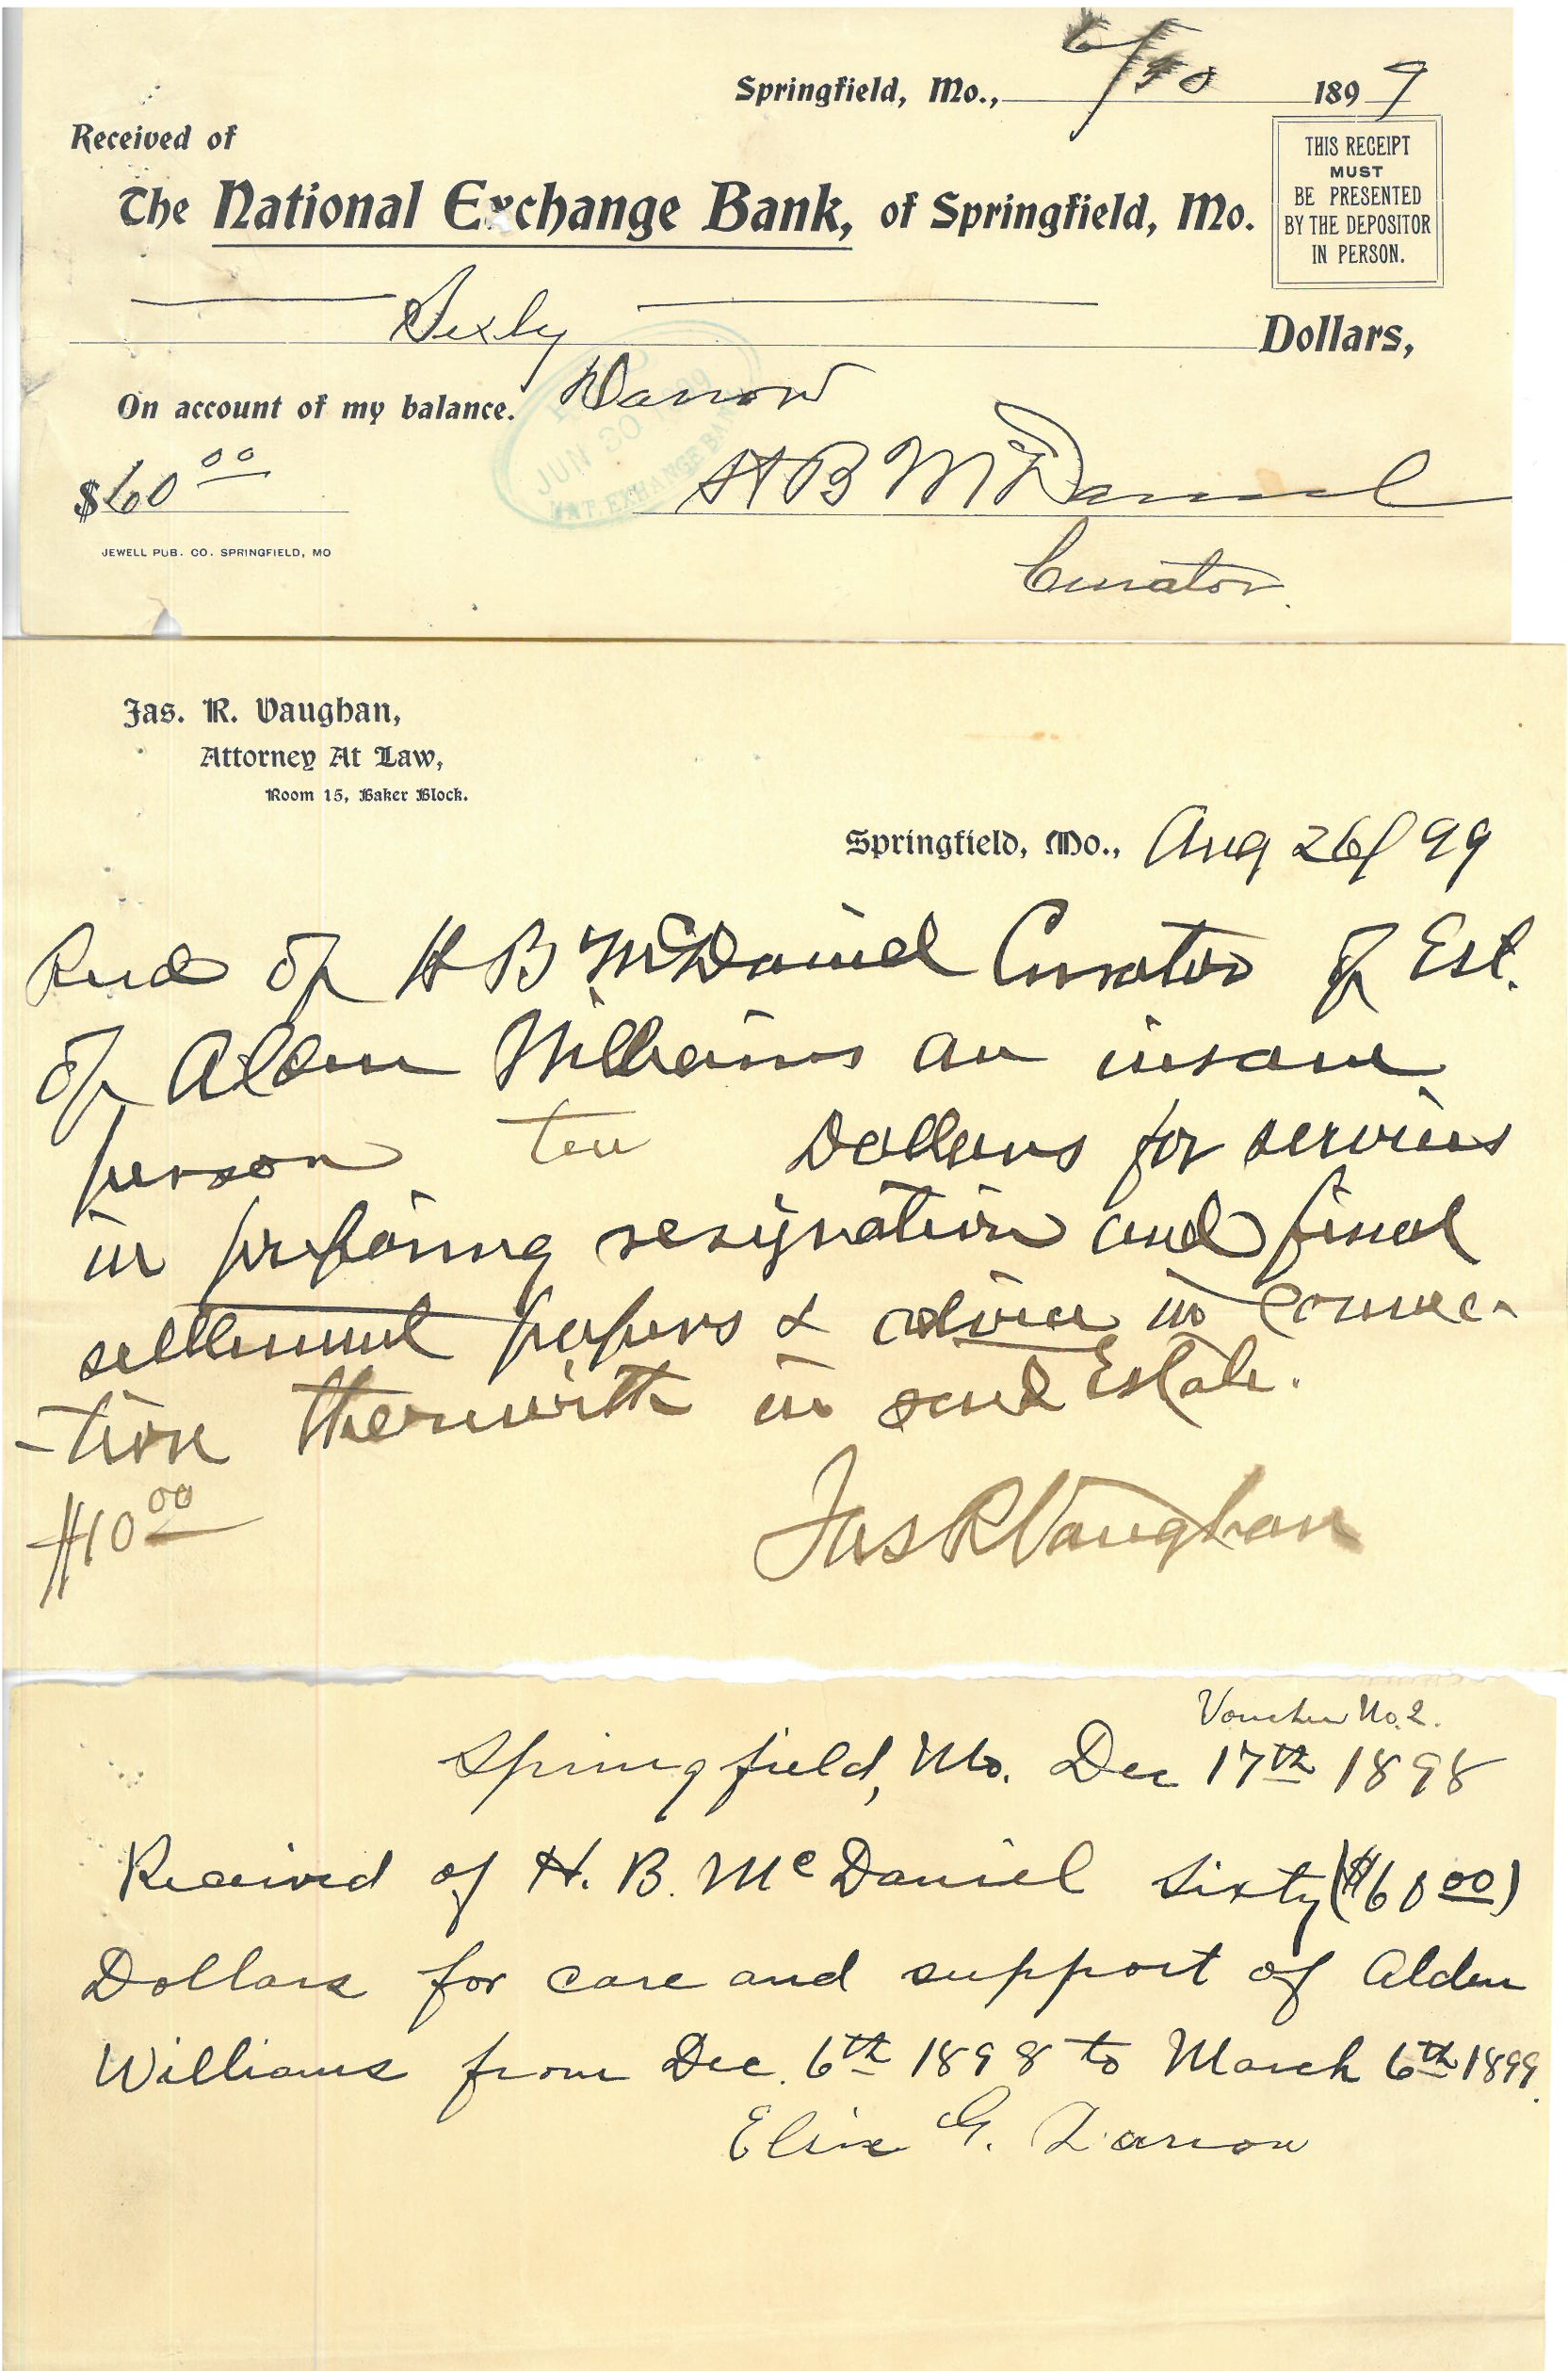 Springfield, Mo., 6/30 1899
Received of
The National Exchange Bank, of Springfield, Mo.
THIS RECEIPT
MUST
BE PRESENTED
BY THE DEPOSITOR
IN PERSON.
Sixty Dollars,
On account of my balance. Darrow
JUN 30 1899
NAT. EXCHANGE BANK
$60 00
H B McDaniel
Curator.
JEWELL PUB. CO. SPRINGFIELD, MO
Jas. R. Vaughan,
Attorney At Law,
Room 15, Baker Block.
Springfield, Mo., Aug 26/99
Recd of H B McDaniel Curator of Est.
of Alden Williams an insane
person ten Dollars for services
in preparing resignation and final
settlement papers & advice in connec-
-tion therewith in said Estate.
$10 00
Jas R Vaughan
Voucher No. 2.
Springfield, Mo. Dec 17th 1898
Received of H. B. McDaniel Sixty ($60 00)
Dollars for care and support of Alden
Williams from Dec. 6th 1898 to March 6th 1899.
G. Darrow